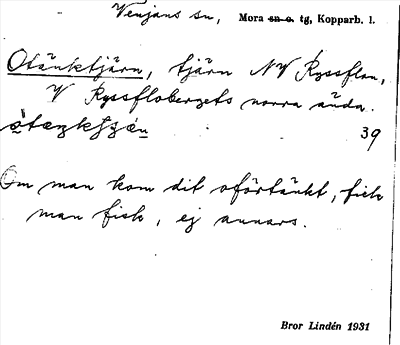 Venjans sn, Mora sn o. tg, Kopparb. l.
Otänktjärn, tjärn NV Ryssflon,
V Ryssflobergets norra ända.
39
Om man kom dit oförtänkt, fick
man fisk, ej annars.
Bror Lindén 1931